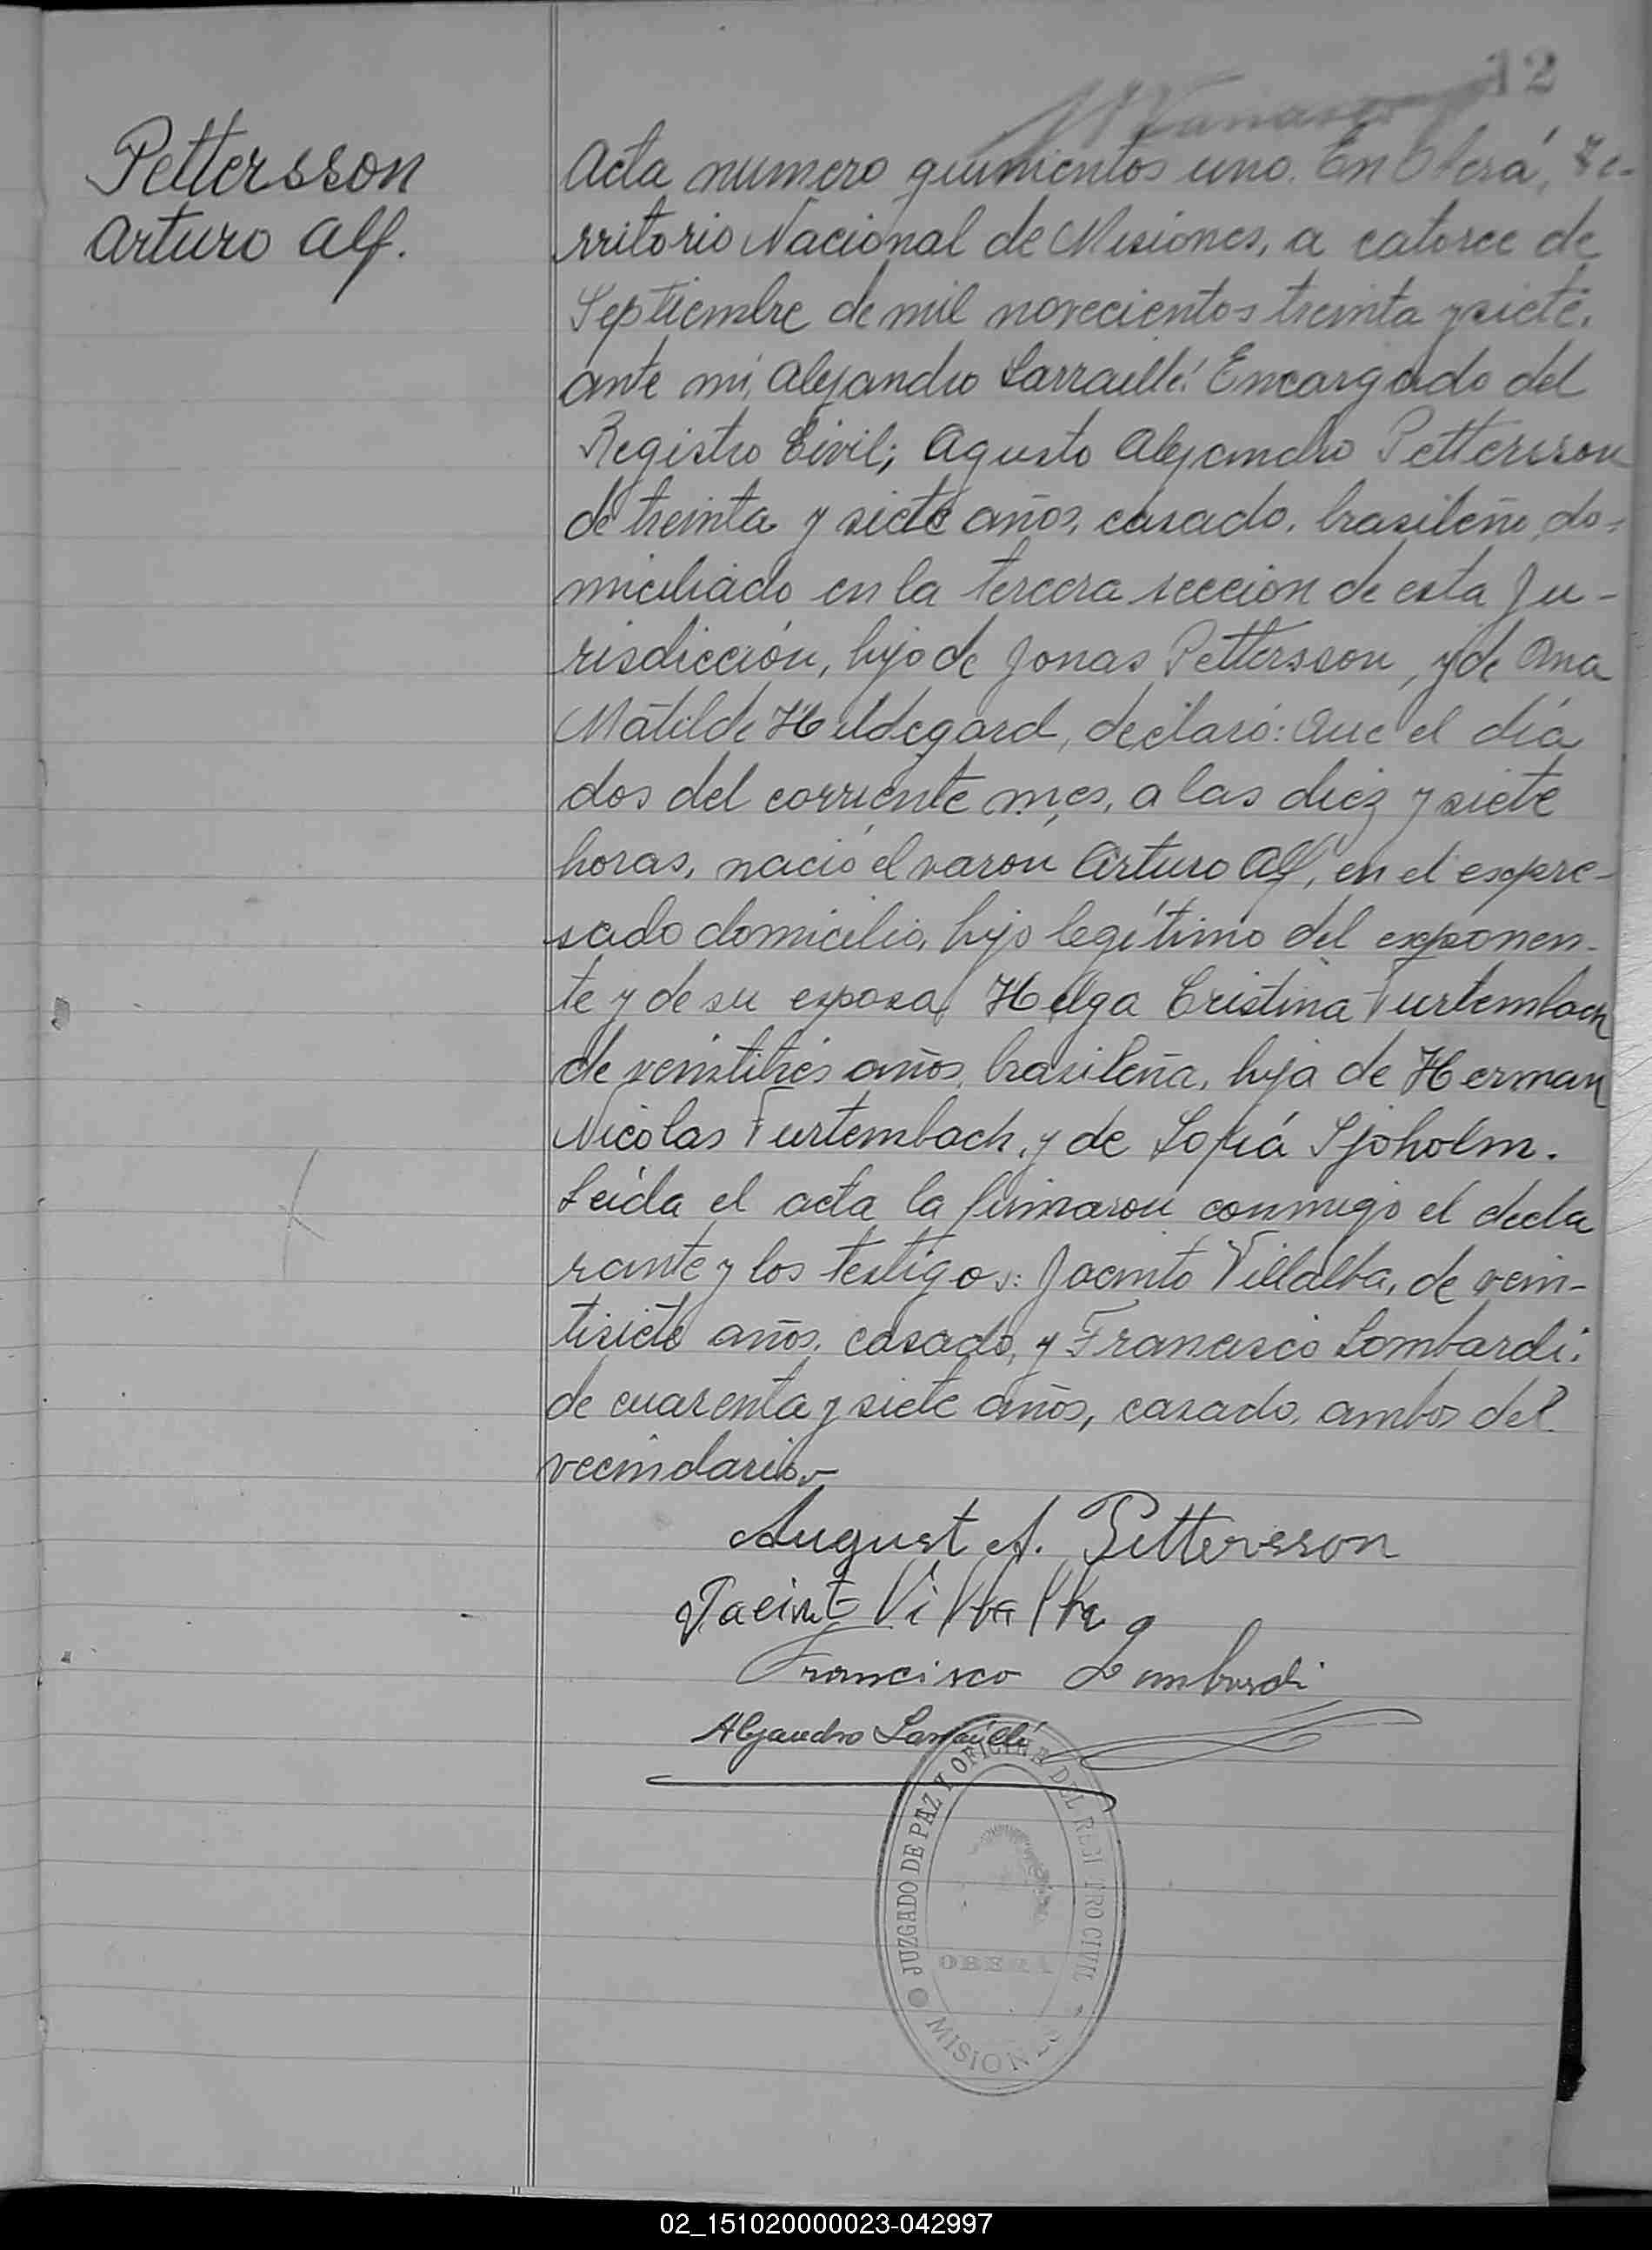 12
Pettersson
Arturo Alf.
Acta numero quinientos uno. En Oberá, Te-
rritorio Nacional de Misiones, a catorce de
Septiembre de mil novecientos treinta y siete,
ante mi, Alejandro Larraillé Encargado del
Registro Civil; Agusto Alejandro Pettersson
de treinta y siete años, casado, brasileño, do-
miciliado en la tercera seccion de esta Ju-
risdicción, hijo de Jonas Pettersson, y de Ana
Matilde Huldegard, declaró: Que el día
dos del corriente mes, a las diez y siete
horas, nació el varón Arturo Alf, en el expre-
sado domicilio, hijo legítimo del exponen-
te y de su esposa Helga Cristina Furtembach
de veintitrés años, brasileña, hija de Herman
Nicolas Furtembach, y de Sofiá Sjoholm.
Leída el acta la firmaron conmigo el decla
rante y los testigos: Jacinto Villalba, de vein-
tisiete años, casado, y Francisco Lombardi,
de cuarenta y siete años, casado, ambos del
vecindario.-
August A. Pettersson
Jacinto Villalba
Francisco Lombardi
Alejandro Larraillé
JUZGADO DE PAZ Y OFICINA DEL REGISTRO CIVIL
OBERA
MISIONES
02_151020000023-042997